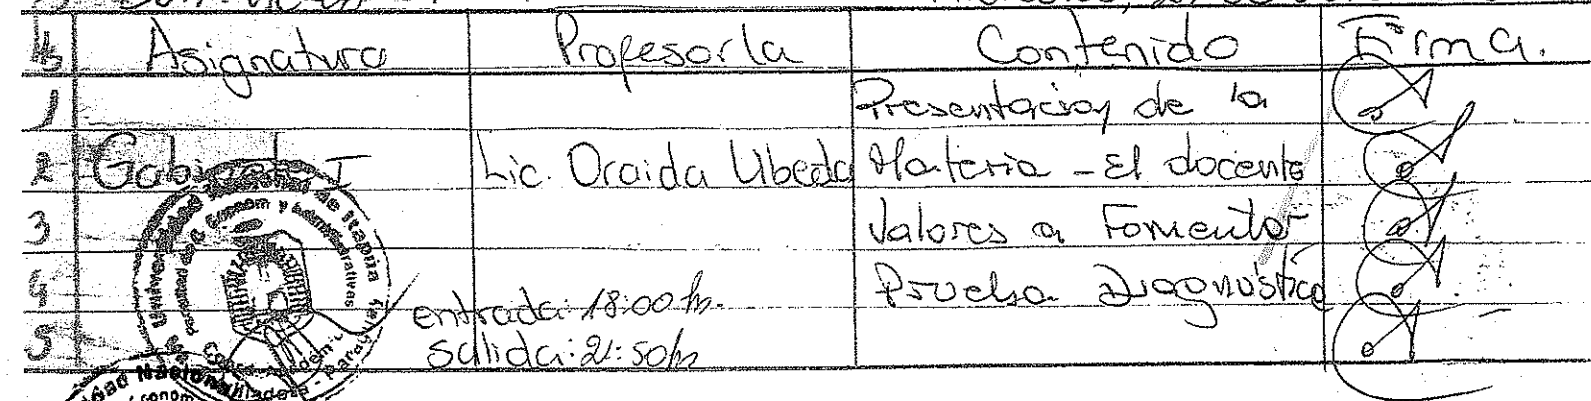 Asignatura Profesor/a Contenido Firma.
1 Presentación de la
2 Gabinete I Lic. Oraida Ubeda Materia - El docente
3 Valores a Fomentar
4 Prueba Diagnóstica
entrada: 18:00 hs.
5 salida: 21:50hs